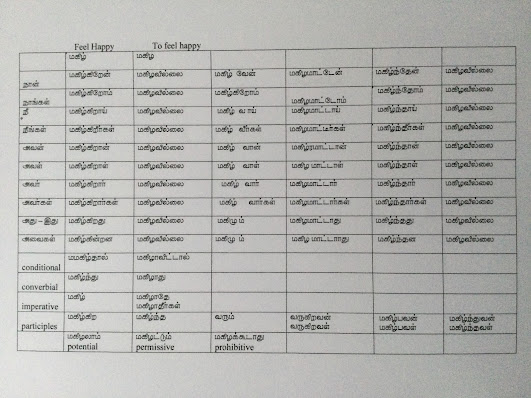 Feel Happy To feel happy
மகிழ் மகிழ்
நான் மகிழ்கிறேன் மகிழவில்லை மகிழ் வேன் மகிழமாட்டேன் மகிழ்ந்தேன் மகிழவில்லை
நாங்கள் மகிழ்கிறோம் மகிழவில்லை மகிழ்கிறோம் மகிழமாட்டோம் மகிழ்ந்தோம் மகிழவில்லை
நீ மகிழ்கிறாய் மகிழவில்லை மகிழ் வ ாய் மகிழமாட்டாய் மகிழ்ந்தாய் மகிழவில்லை
நீங்கள் மகிழ்கிறீர்கள் மகிழவில்லை மகிழ் வீர்கள் மகிழமாட்டீர்கள் மகிழ்ந்தீர்கள் மகிழவில்லை
அவன் மகிழ்கிறான் மகிழவில்லை மகிழ் வான் மகிழமாட்டான் மகிழ்ந்தான் மகிழவில்லை
அவள் மகிழ்கிறாள் மகிழவில்லை மகிழ் வாள் மகிழ மாட்டாள் மகிழ்ந்தாள் மகிழவில்லை
அவர் மகிழ்கிறார் மகிழவில்லை மகிழ் வார் மகிழமாட்டார் மகிழ்ந்தார் மகிழவில்லை
அவர்கள் மகிழ்கிறார்கள் மகிழவில்லை மகிழ் வார்கள் மகிழமாட்டார்கள் மகிழ்ந்தார்கள் மகிழவில்லை
அது – இது மகிழ்கிறது மகிழவில்லை மகிழும் மகிழமாட்டாது மகிழ்ந்தது மகிழவில்லை
அவைகள் மகிழ்கின்றன மகிழவில்லை மகிழும் மகிழ மாட்டாாது மகிழ்ந்தன மகிழவில்லை
conditional மமகிழ்தால் மகிழாவிட்டால்
converbial மகிழ்ந்து மகிழாது
imperative மகிழ் மகிழாதே
மகிழாதீர்கள்
participles மகிழ்கிற மகிழ்ந்த வரும் வருகிறவன் மகிழ்பவன் மகிழ்ந்துவன்
வருகிறவள் மகிழ்பவள் மகிழ்ந்தவள்
மகிழலாம் மகிழட்டும் மகிழக்கூடாது
potential permissive prohibitive